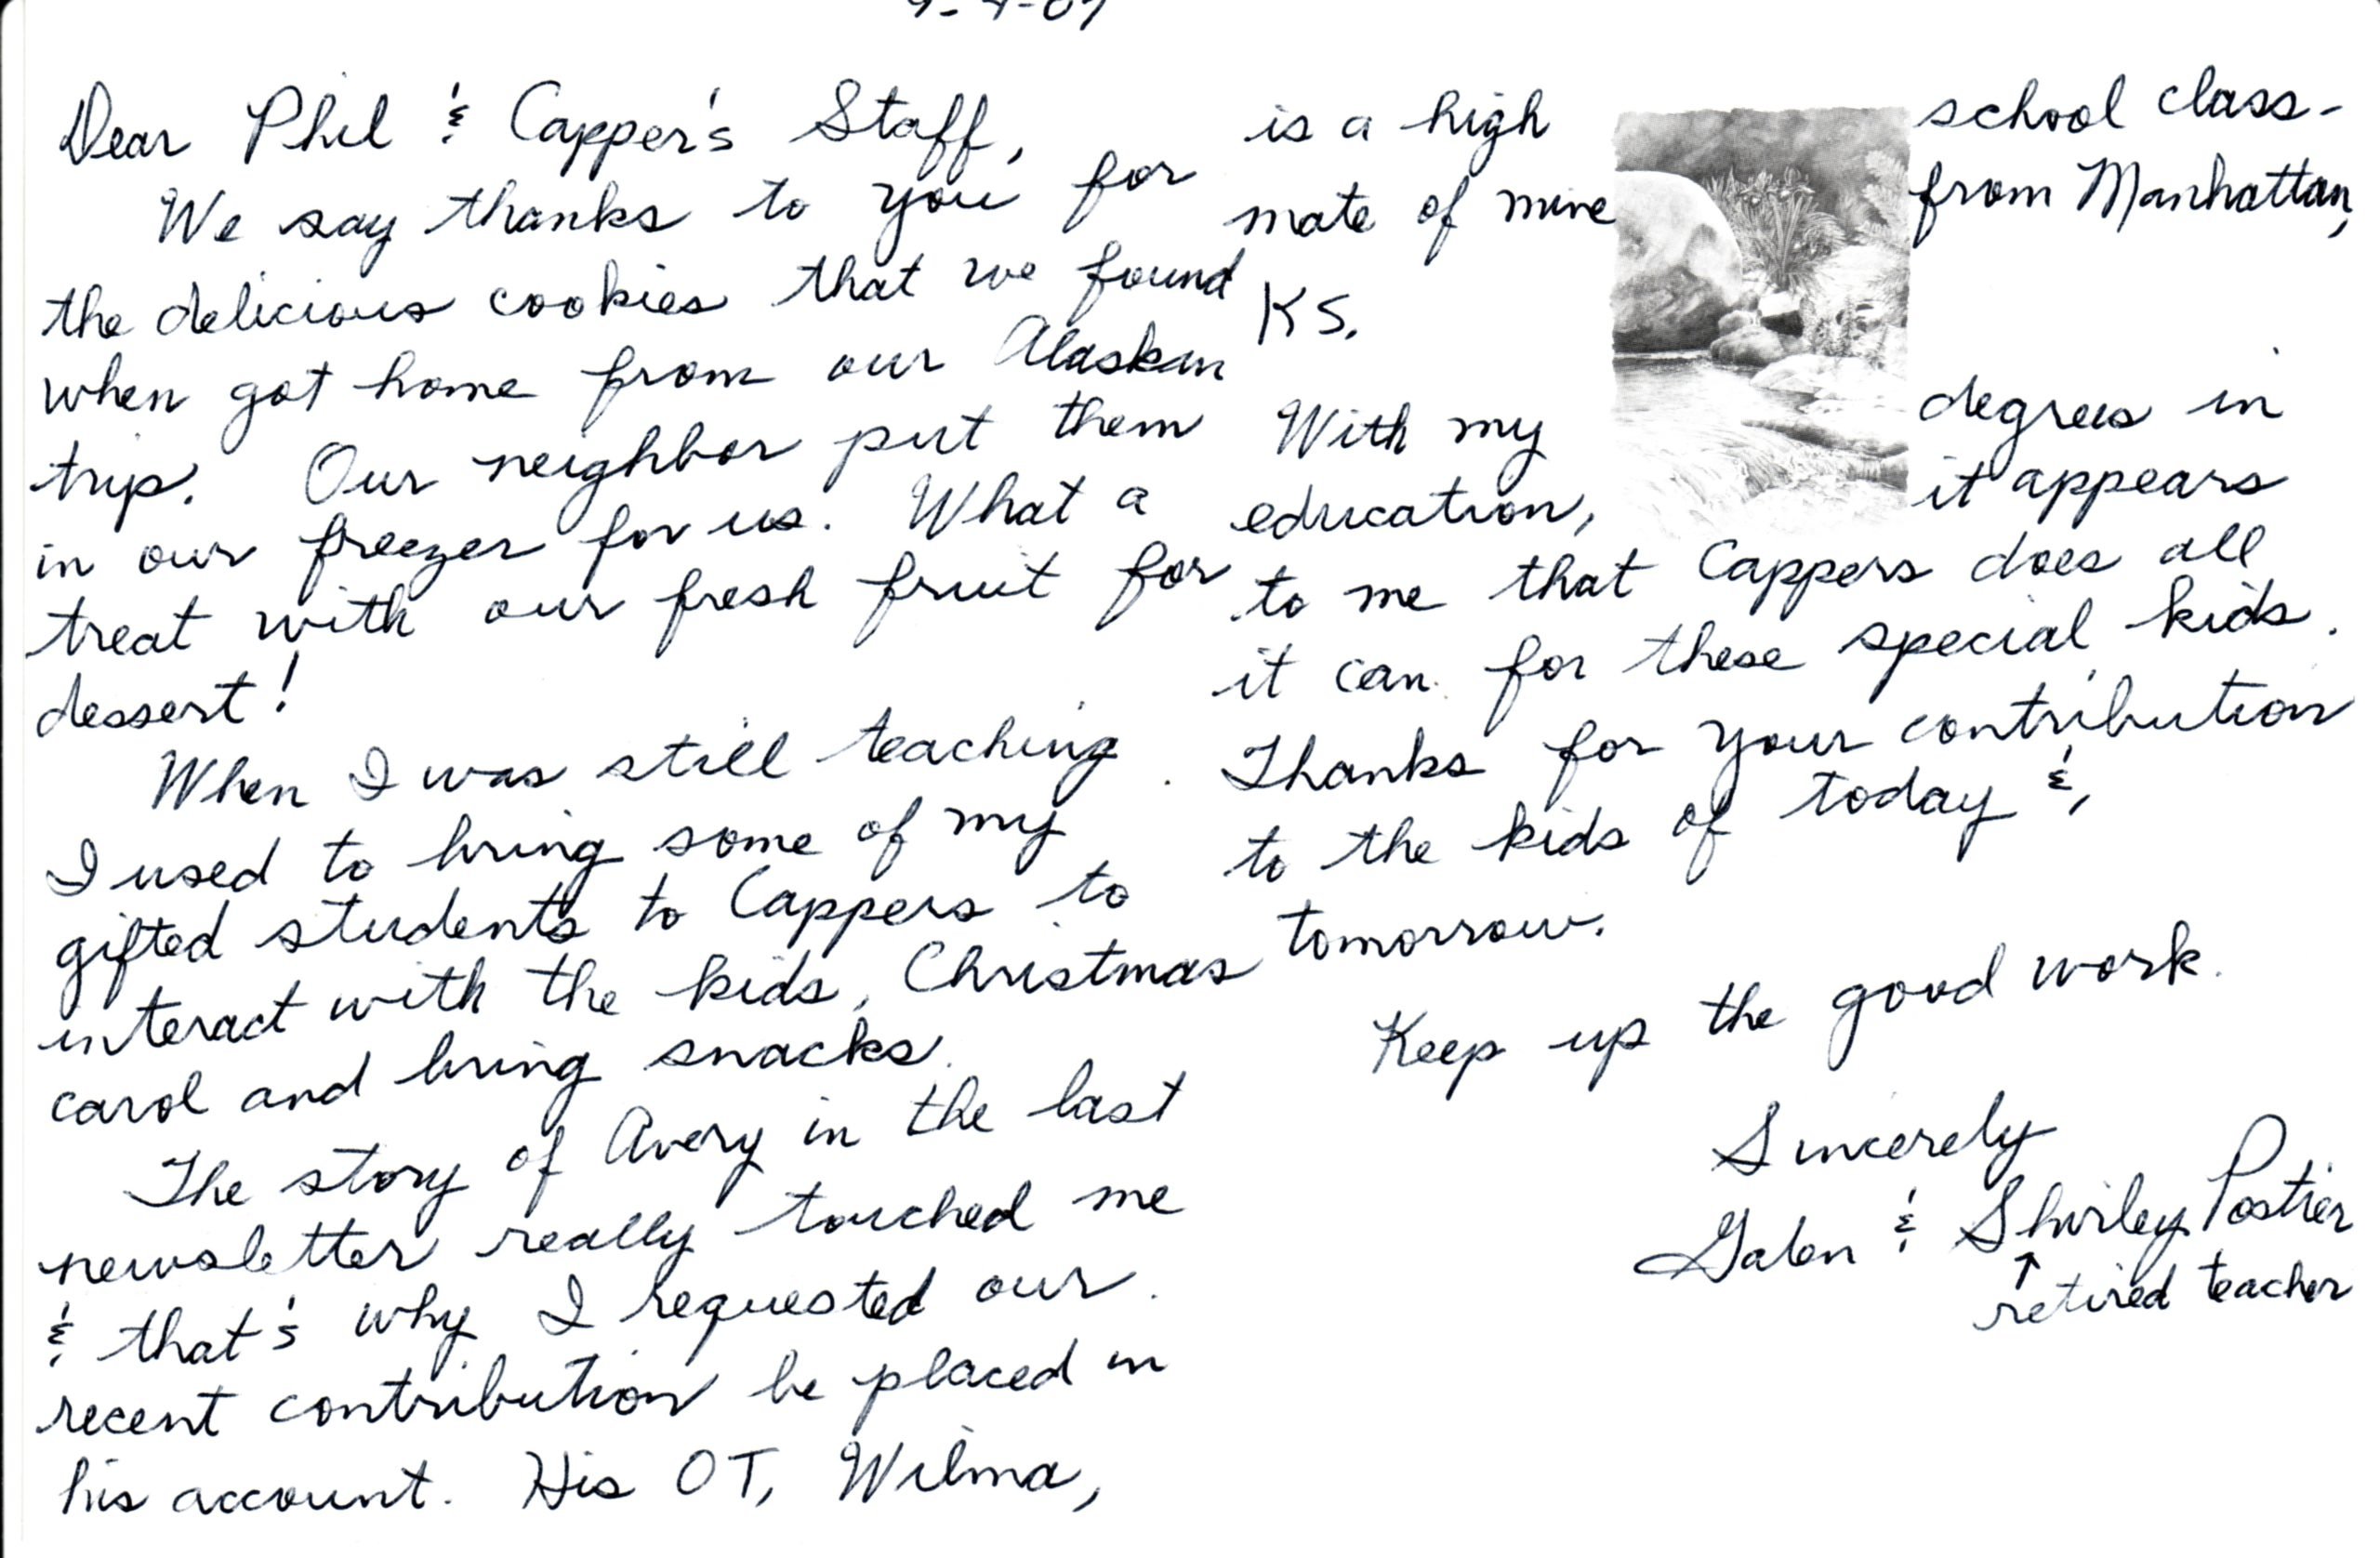 Dear Phil & Capper's Staff,
We say thanks to you for
the delicious cookies that we found
when got home from our Alaskan
trip. Our neighbor put them
in our freezer for us. What a
treat with our fresh fruit for
dessert!
When I was still teaching
I used to bring some of my
gifted students to Cappers to
interact with the kids, Christmas
carol and bring snacks.
The story of Avery in the last
newsletter really touched me
& that's why I requested our
recent contribution be placed in
his account. His OT, Wilma,
is a high school class-
mate of mine from Manhattan,
KS.
With my degrees in
education, it appears
to me that Cappers does all
it can for these special kids.
Thanks for your contribution
to the kids of today &,
tomorrow.
Keep up the good work.
Sincerely
Galen & Shirley Postier
↑
retired teacher